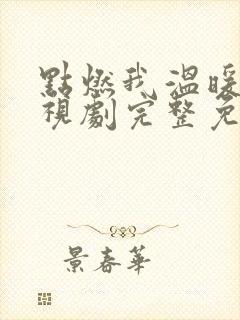 點燃我溫暖
視劇完整免
景春華